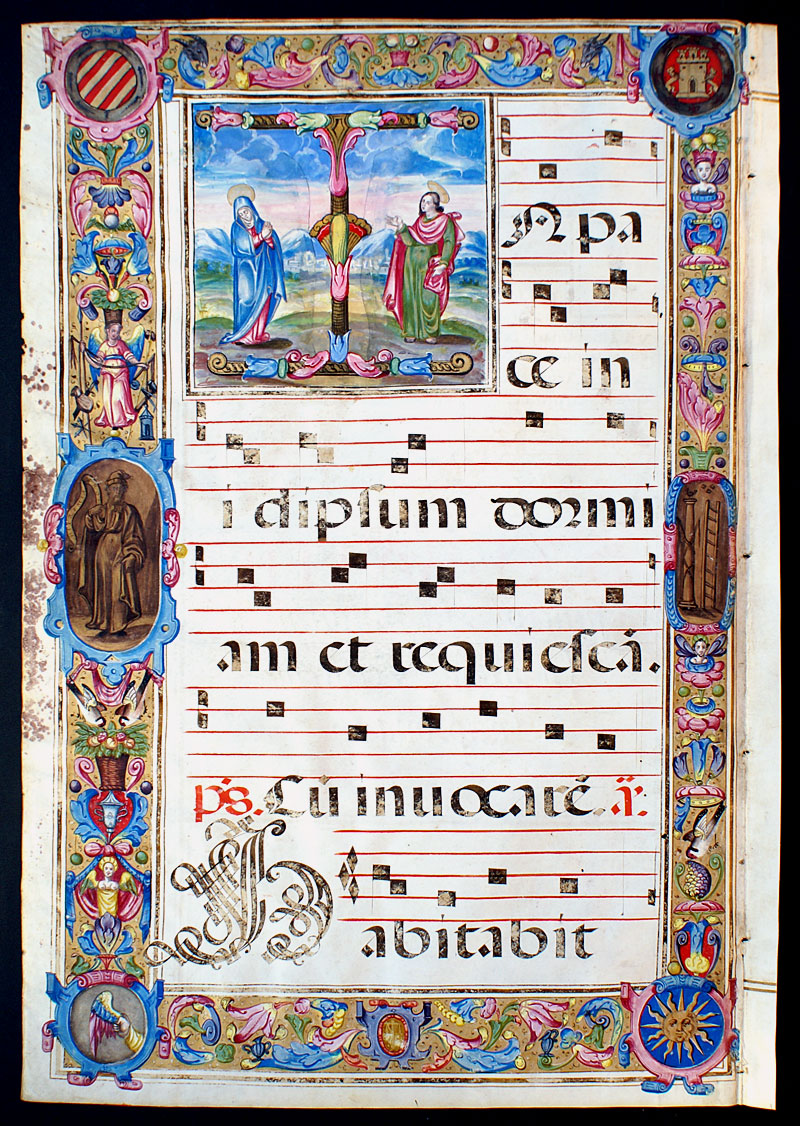 IN pa
ce in
i dipſum dormi
am et requieſcā.
ps. Cū inuocarē. ā.
Habitabit